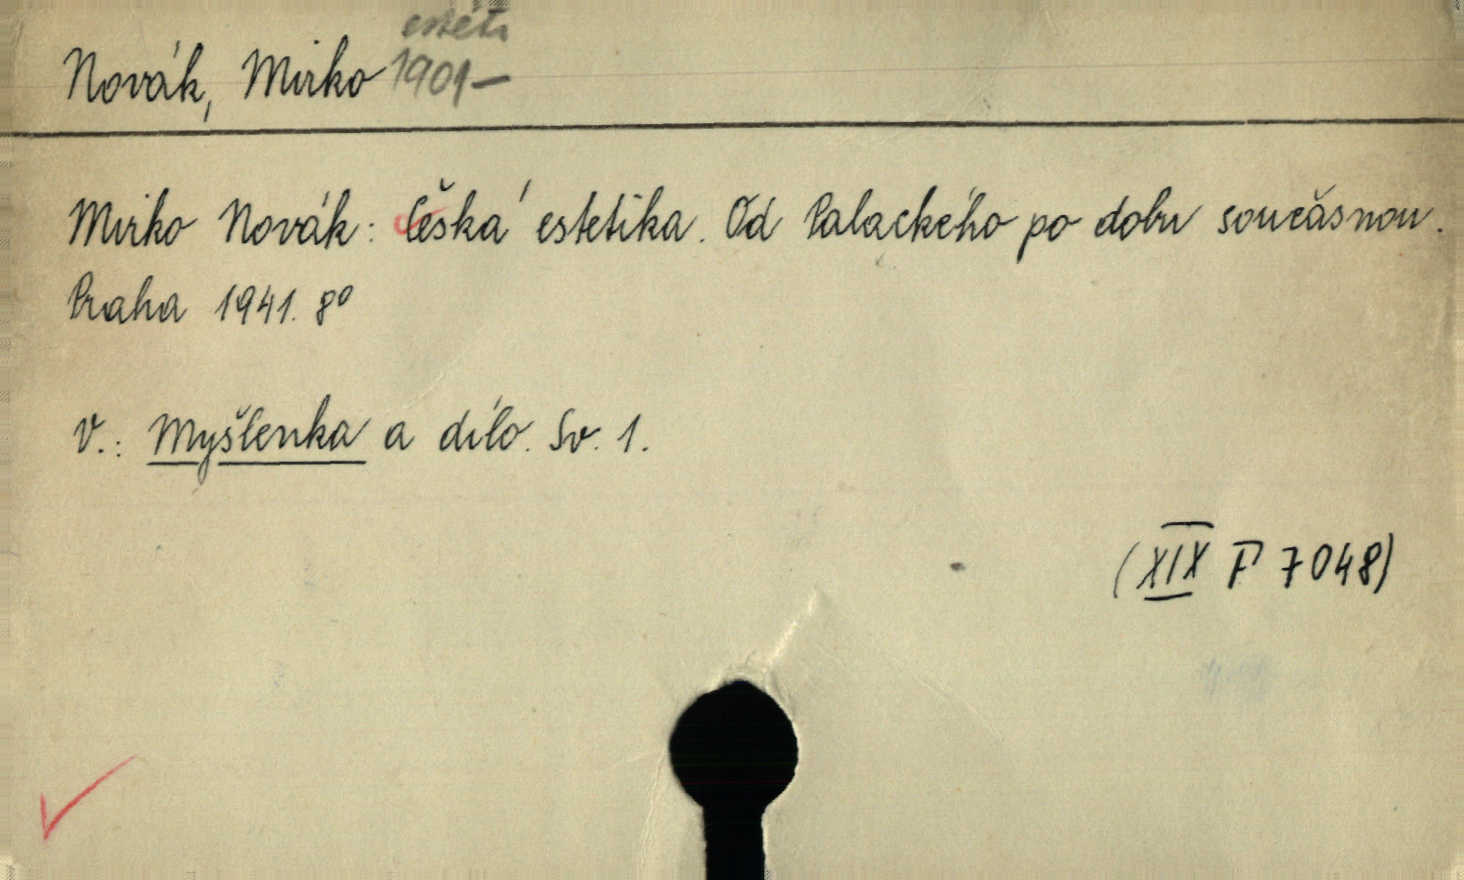 estét.
Novák, Mirko 1901–
Mirko Novák: Česká estetika. Od Palackého po dobu současnou.
Praha 1941. 8°
V.: Myšlenka a dílo. Sv. 1.
(XIX F 7048)